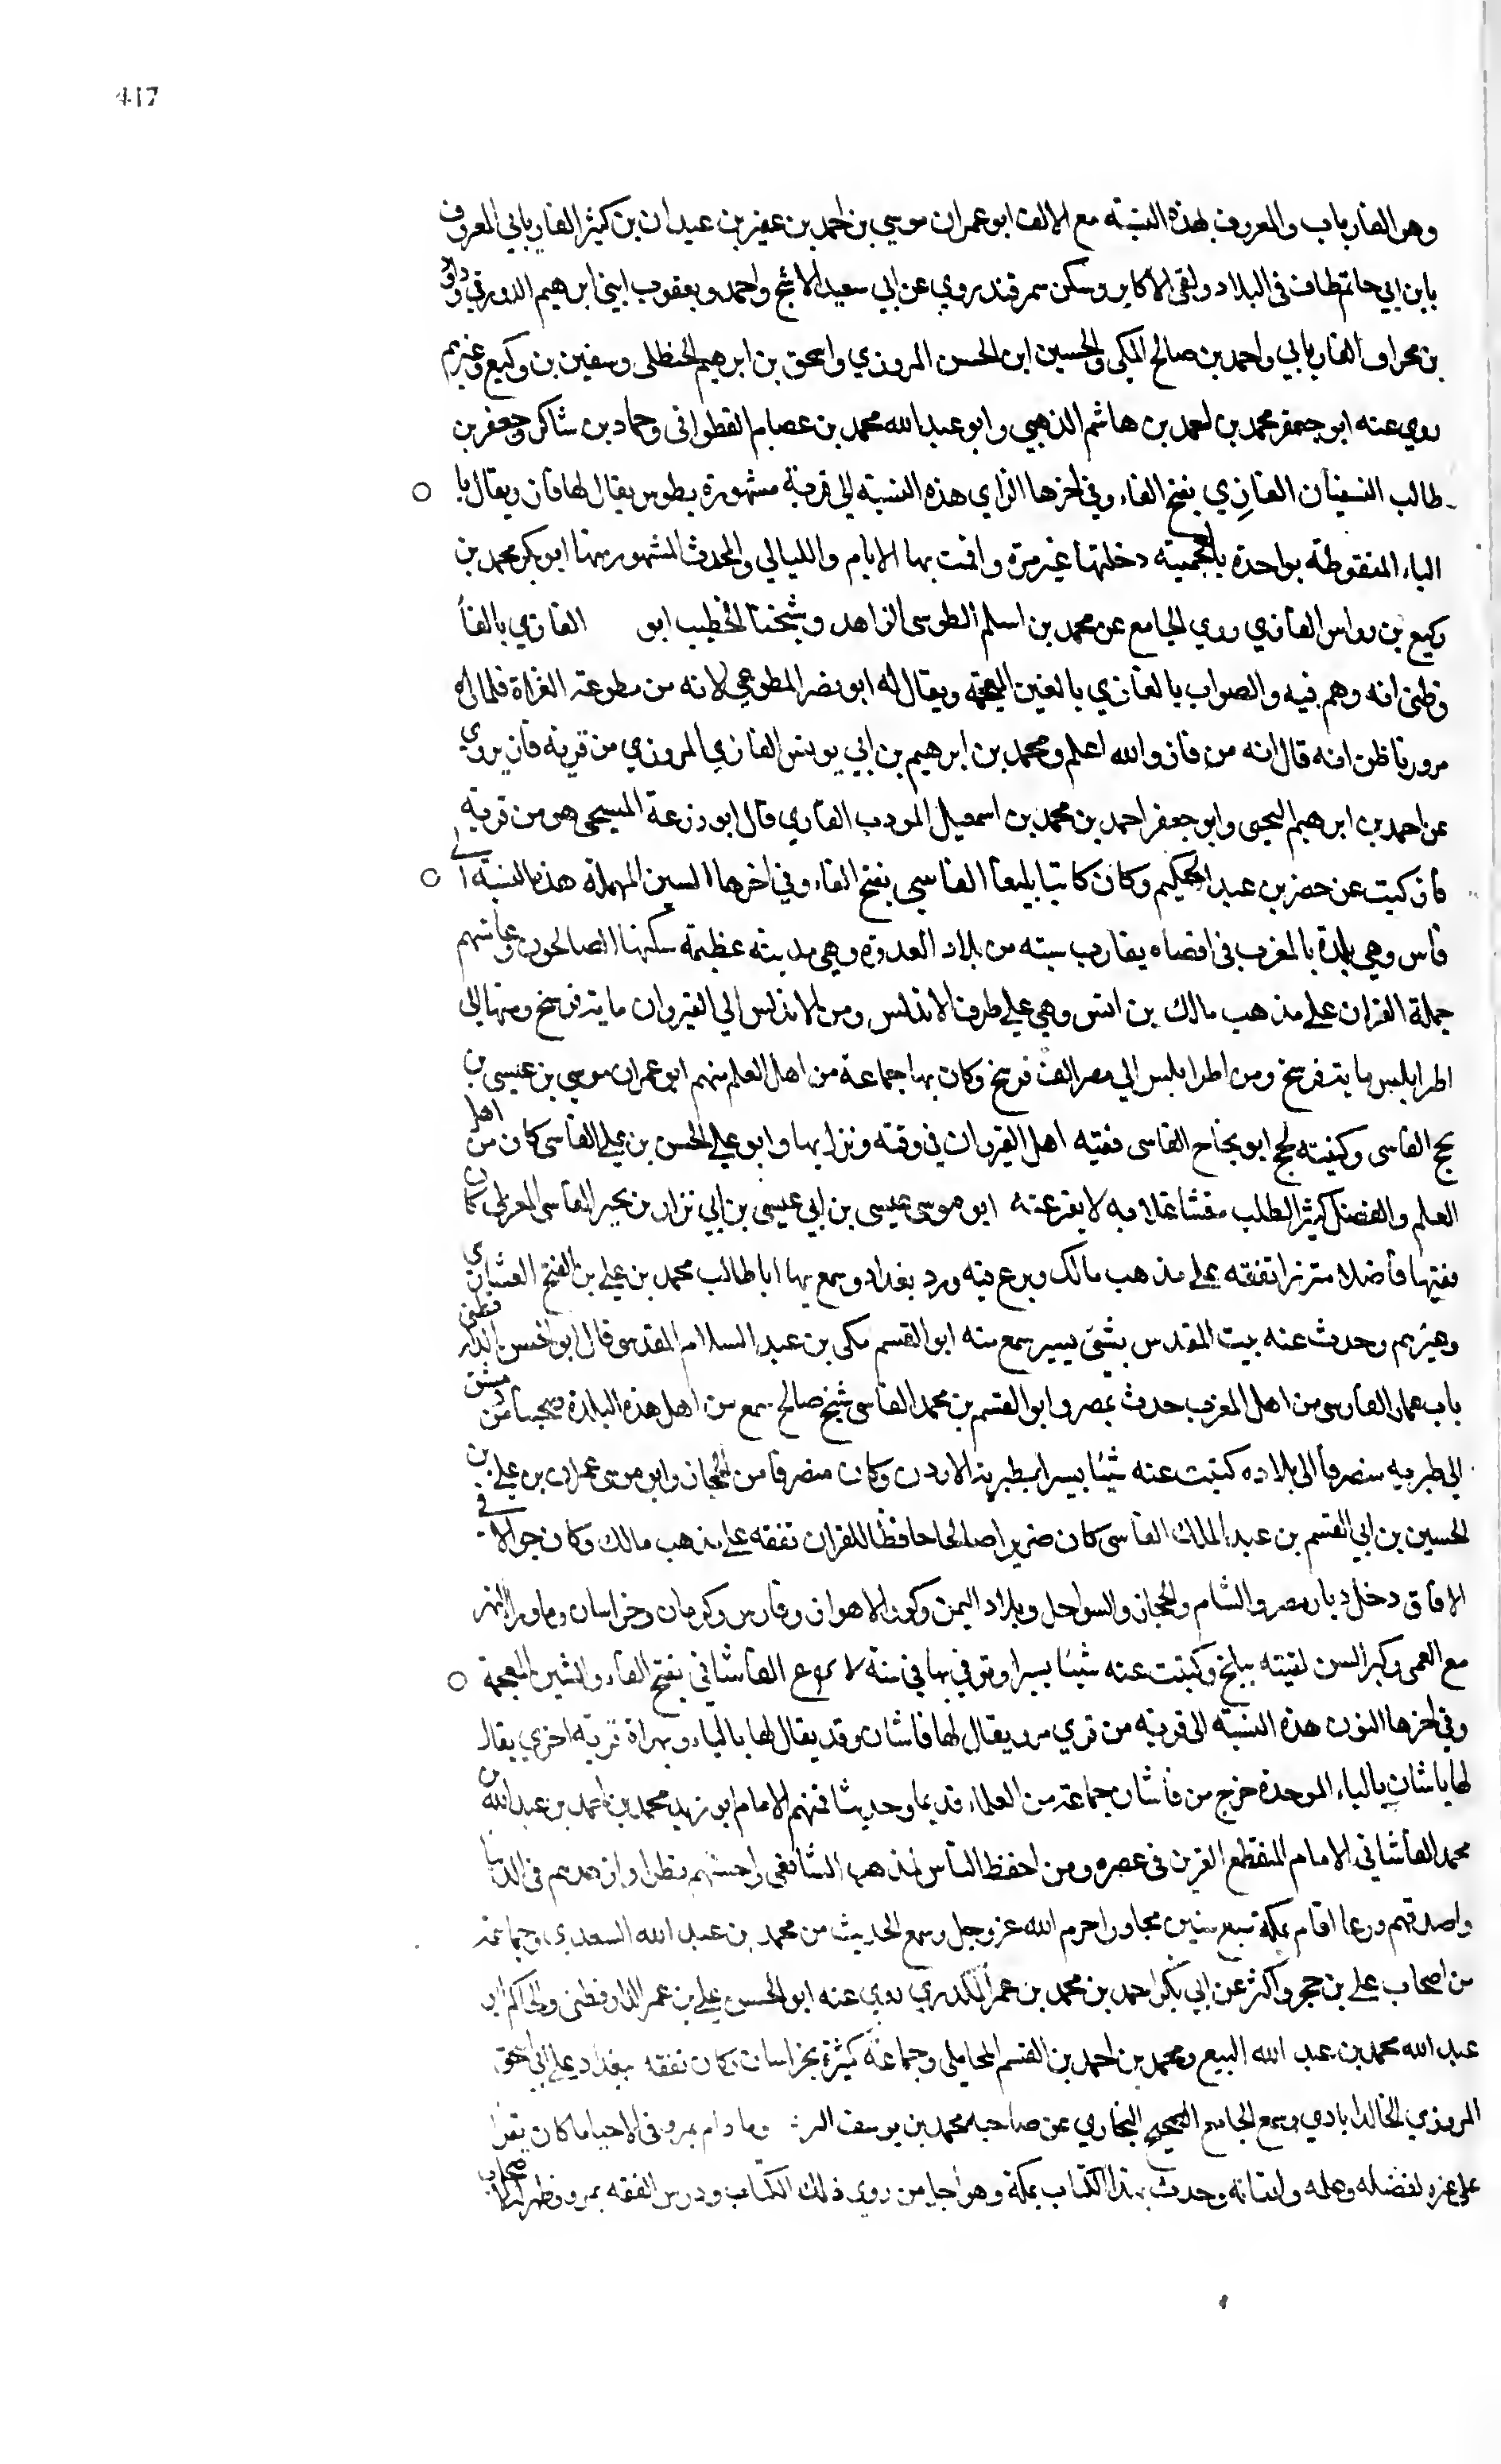 417
وهي الفارياب والمعروف بهذه النسبة مع الالف ابو عمران موسي بن احمد بن عفير بن عبدان بن كثير الفاريابي المعروف
بابن ابي حاتم طاف في البلاد ولقي الاكابر وسكن سمرقند روي عن ابي سعيد الاشج واحمد ويعقوب ابني ابرهيم الدورقي وداود
بن محراق الفاريابي واحمد بن صالح المكي والحسين ابن الحسن المروزي واسحق بن ابرهيم الحنظلي وسفين بن وكيع وغيرهم
روي عنه ابو جعفر محمد بن احمد بن هاشم الذهبي وابو عبد الله محمد بن عصام القطواني وحماد بن شاكر وجعفر بن
طالب النسفيان الفازي بفتح الفاء وفي اخرها الزاي هذه النسبة الي قرية مشهورة بطوس يقال لها فاز ويقال با
الباء المنقوطة بواحدة بالعجمية دخلتها غير مرة واقمت بها الايام والليالي والمحدث المشهور منها ابو بكر محمد بن
وكيع بن رواس الفازي روي الجامع عن محمد بن اسلم الطوسي الزاهد وشيخنا الخطيب ابو الفازي بالفا
وظني انه وهم فيه والصواب بالغازي بالغين المعجمة ويقال له ابو نصر المطوعي لانه من مطوعة الغزاة فلما راه
مروزيا ظن انه قال انه من فاز والله اعلم ومحمد بن ابرهيم بن ابي يونس الفازي المروزي من قرية فاز يروي
عن احمد بن ابرهيم وابو جعفر احمد بن محمد بن اسمعيل المودب الفازي قال ابو زرعة المسيحي هو من قرية
فاز كتبت عن حفر بن عبد الحكيم وكان كاتبا بليغا الفاسي بفتح الفاء وفي اخرها السين المهملة هذه النسبة الي
فاس وهي بلدة بالمغرب في اقصاه يقارب سبته من بلاد العدوة وهي مدينة عظيمة سكنها الصالحون وعامتهم
حملة القران علي مذهب مالك بن انس وهي علي طرف الاندلس ومن الاندلس الي القيروان مايتا فرسخ ومنها الي
اطرابلس مايتا فرسخ ومن اطرابلس الي مصر الف فرسخ وكان بها جماعة من اهل العلم منهم ابو عمران موسي بن عيسي بن
نجح الفاسي وكنيته نجح ابو نجاح الفاسي فقيه اهل القيروان في وقته ونزل بها وابو علي الحسن بن علي الفاسي كان من اهل
العلم والفضل كثير الطلب ابو موسي عيسي بن ابي عيسي بن ابي نزار بن بحير الفاسي المغربي كان
فقيها فاضلا متزنرا تفقه علي مذهب مالك وبرع فيه ورد بغداد وسمع بها ابا طالب محمد بن علي بن الفتح العشاري
وغيرهم وحدث عنه ببيت المقدس بشيء يسير سمع منه ابو القسم مكي بن عبد السلام المقدسي قال ابو الحسن الدارقطني
باب عمار الفارسي من اهل المغرب حدث بمصر وابو القسم بن محمد الفاسي شيخ صالح سمع من اهل هذه البلدة صحبنا من دمشق
الي طبرية منصرفا الي بلاده كتبت عنه شيئا يسيرا بطبرية الاردن وكان منصرفا من الحجاز وابو موسي عمران بن علي بن
الحسين بن ابي القسم بن عبد الملك الفاسي كان ضريرا صالحا حافظا للقران تفقه علي مذهب مالك وكان جوالا في
الافاق دخل ديار مصر والشام والحجاز والسواحل وبلاد اليمن وكور الاهواز وفارس وكرمان وخراسان وماوراالنهر
مع العمي وكبر السن لقيته ببلخ وكتبت عنه شيئا يسيرا وتوفي بها في سنة الفاشاني بفتح الفاء والشين المعجمة
وفي اخرها النون هذه النسبة الي قرية من قري مرو يقال لها فاشان وقد يقال لها بالباء وبهراة قرية اخري يقال
لها باشان بالباء الموحدة خرج من فاشان جماعة من العلماء قديما وحديثا فمنهم الامام ابو زيد محمد بن احمد بن عبد الله بن
محمد الفاشاني الامام المنقطع القرين في عصره ومن احفظ الناس لمذهب الشافعي واحسنهم نظرا وازهدهم في الدنيا
واصدقهم ورعا اقام بمكة سبع سنين مجاورا حرم الله عز وجل وسمع الحديث من محمد بن عبد الله السعدي وجماعة
من اصحاب علي بن حجر واكثر عن ابي بكر احمد بن محمد بن عمر المنكدري روي عنه ابو الحسن علي بن عمر الدارقطني والحاكم ابو
عبد الله محمد بن عبد الله البيع ومحمد بن احمد بن القسم المحاملي وجماعة كثيرة بخراسان وكان تفقه ببغداد علي ابي اسحق
المروزي الخالدابادي وسمع الجامع الصحيح للبخاري عن صاحبه محمد بن يوسف وما دام بمرو في الاحيا ما كان يقرا
علي غيره لفضله وعلمه واتقانه وحدث بهذا الكتاب بمكة وهو اجل من روي ذلك الكتاب ودرس الفقه بمرو وظهر له اصحاب